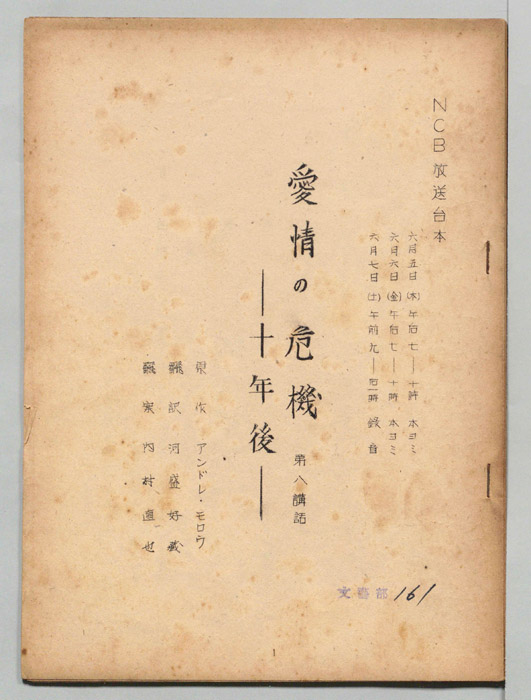 NCB放送台本
六月五日(木)午后七――十時 本ヨミ
六月六日(金)午后七――十時 本ヨミ
六月七日(土)午前九――后一時 録音
愛情の危機 第八講話
――十年後――
原作 アンドレ・モロウ
飜訳 河盛好蔵
飜案 内村直也
文藝部 161
1